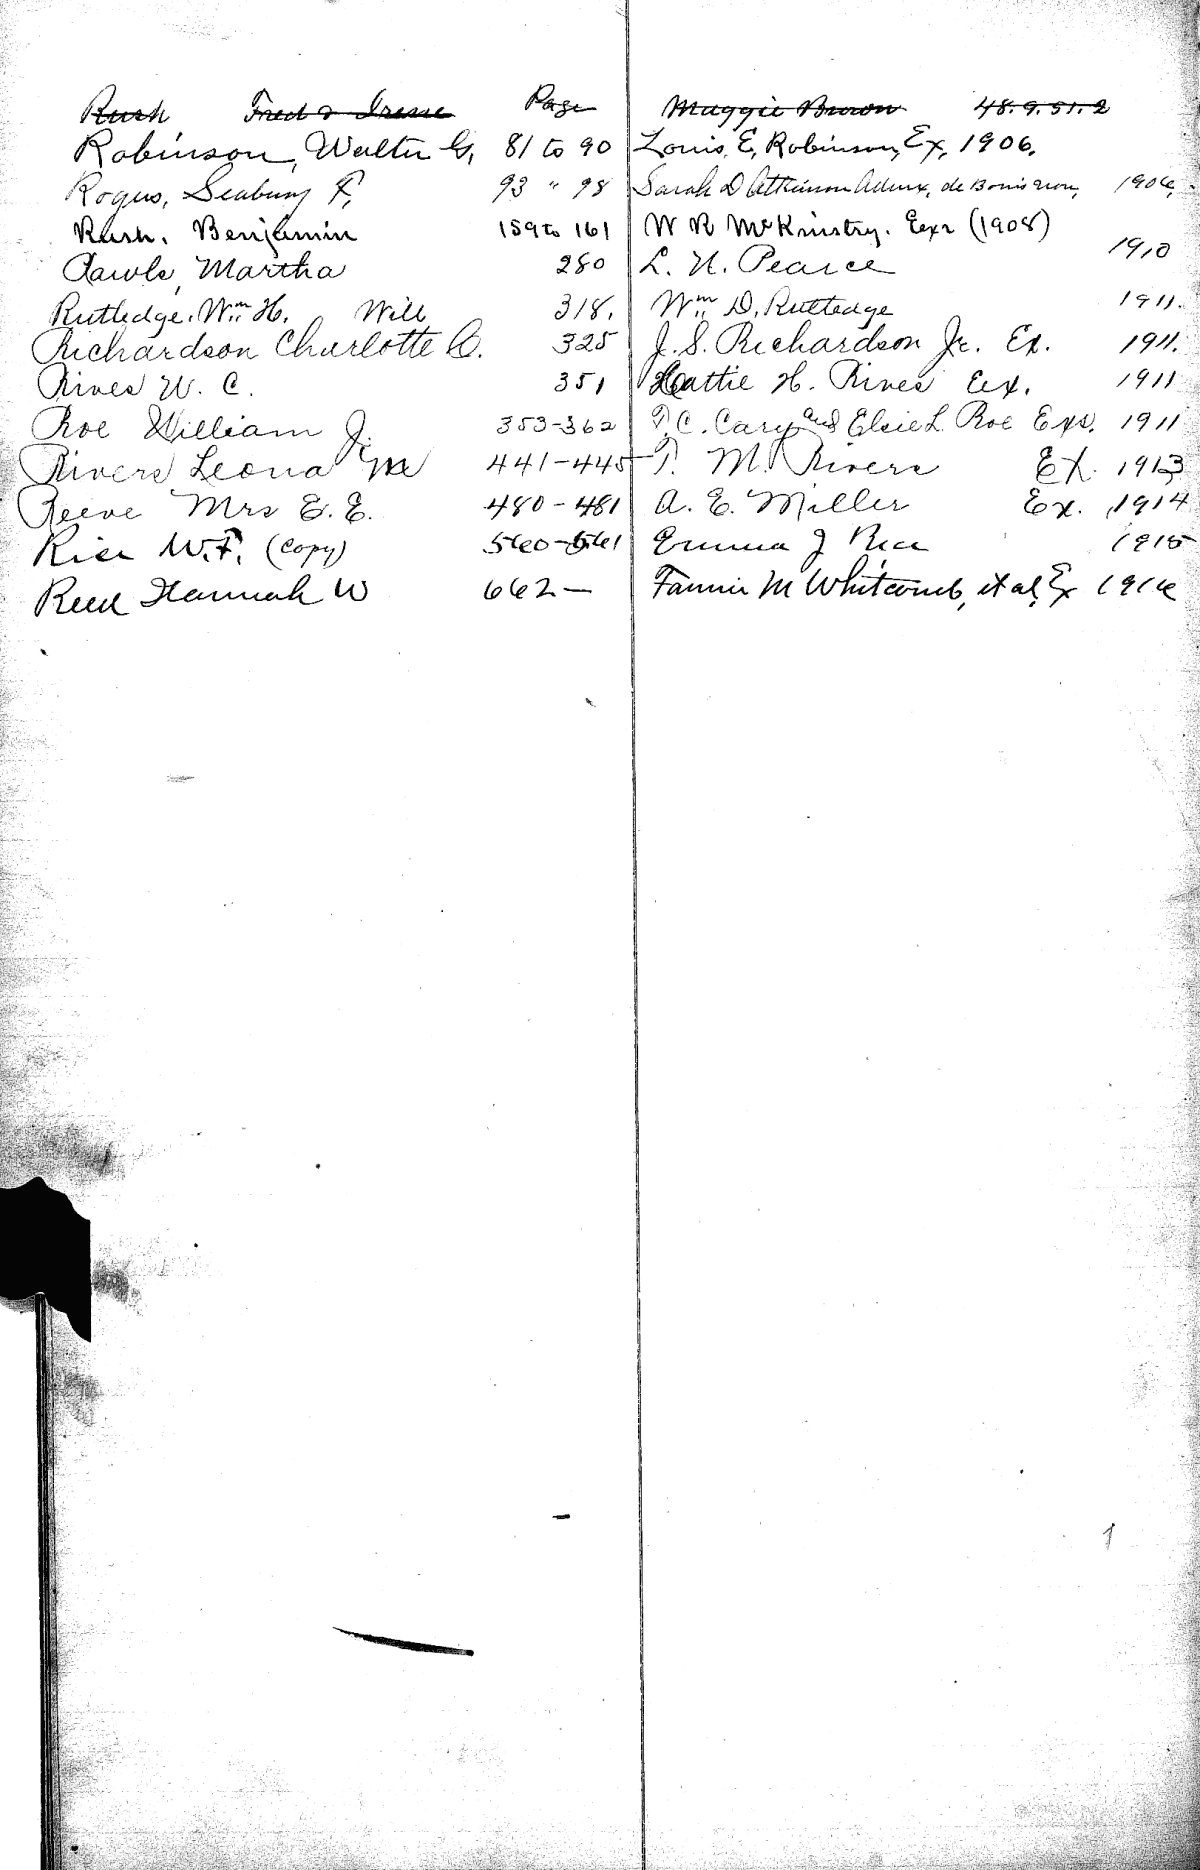 Rush Fred & Irene Page Maggie Brown 48.9.51.2
Robinson, Walter G, 81 to 90 Louis, E, Robinson, Ex, 1906.
Rogus, Seabury F, 93 " 98 Sarah D Atkinson Admx, de Bonis non, 1906,
Rush. Benjamin 159 to 161 W R McKinstry. Exr (1908)
Rawls, Martha 280 L. N. Pearce 1910
Rutledge. Wm H. Will 318. Wm D, Rutledge 1911.
Richardson Charlotte C. 325 J. S. Richardson Jr. Ex. 1911.
Rives W. C. 351 Hattie H. Rives Eex. 1911
Roe William J. 353-362 T. C. Cary and Elsie L. Roe Exs. 1911
Rivers Leona M 441-445 T. M. Rivers Ex. 1913
Reeve Mrs E. E. 480-481 A. E. Miller Ex. 1914
Rice W. F. (Copy) 560-561 Emma J Rice 1915
Reed Hannah W 662- Fannie M Whitcomb, et al, Ex 1916